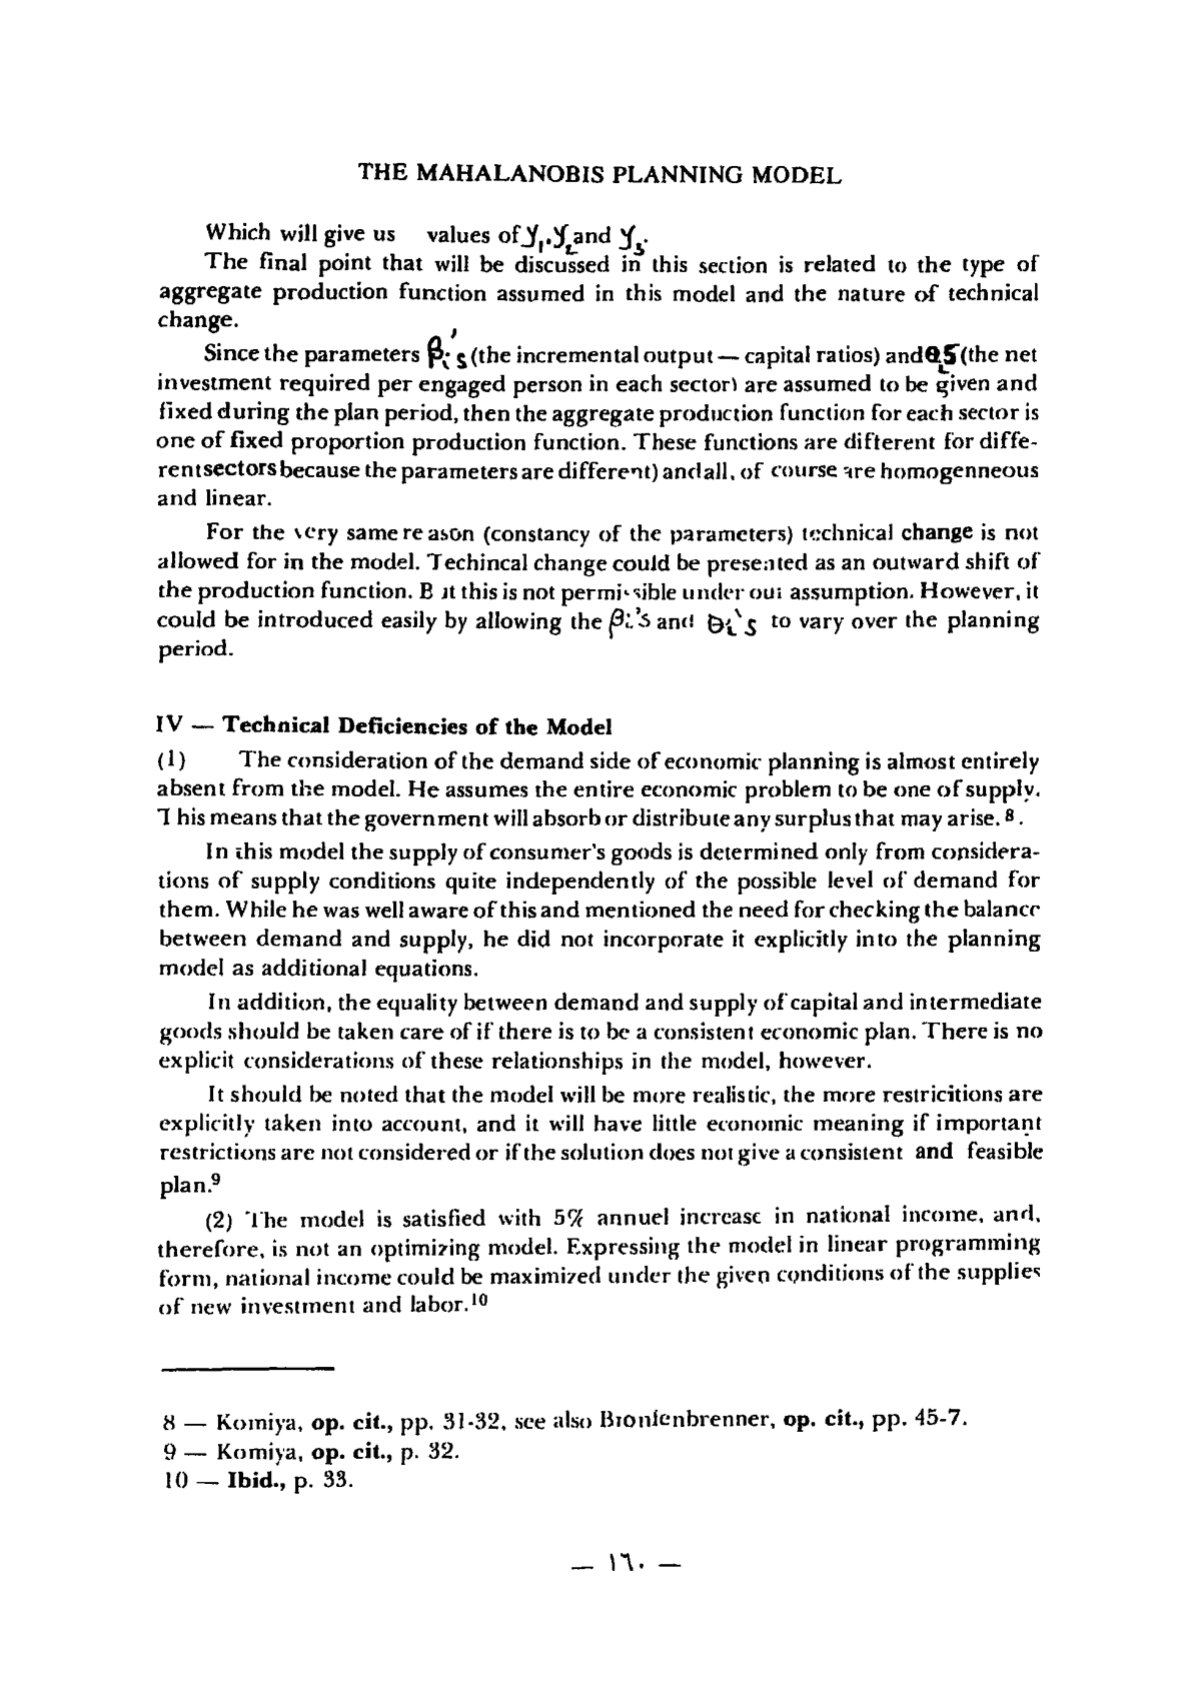 THE MAHALANOBIS PLANNING MODEL
Which will give us values of y₁, y₂ and y₃.
The final point that will be discussed in this section is related to the type of
aggregate production function assumed in this model and the nature of technical
change.
Since the parameters βᵢ's (the incremental output — capital ratios) and θᵢs (the net
investment required per engaged person in each sector) are assumed to be given and
fixed during the plan period, then the aggregate production function for each sector is
one of fixed proportion production function. These functions are different for diffe-
rent sectors because the parameters are different) and all, of course are homogenneous
and linear.
For the very same reason (constancy of the parameters) technical change is not
allowed for in the model. Techincal change could be presented as an outward shift of
the production function. But this is not permissible under our assumption. However, it
could be introduced easily by allowing the βᵢ's and θᵢ's to vary over the planning
period.
IV — Technical Deficiencies of the Model
(1) The consideration of the demand side of economic planning is almost entirely
absent from the model. He assumes the entire economic problem to be one of supply.
This means that the government will absorb or distribute any surplus that may arise. ⁸ .
In this model the supply of consumer's goods is determined only from considera-
tions of supply conditions quite independently of the possible level of demand for
them. While he was well aware of this and mentioned the need for checking the balance
between demand and supply, he did not incorporate it explicitly into the planning
model as additional equations.
In addition, the equality between demand and supply of capital and intermediate
goods should be taken care of if there is to be a consistent economic plan. There is no
explicit considerations of these relationships in the model, however.
It should be noted that the model will be more realistic, the more restricitions are
explicitly taken into account, and it will have little economic meaning if important
restrictions are not considered or if the solution does not give a consistent and feasible
plan.⁹
(2) The model is satisfied with 5% annuel increase in national income, and,
therefore, is not an optimizing model. Expressing the model in linear programming
form, national income could be maximized under the given conditions of the supplies
of new investment and labor.¹⁰
8 — Komiya, op. cit., pp. 31-32, see also Bronfenbrenner, op. cit., pp. 45-7.
9 — Komiya, op. cit., p. 32.
10 — Ibid., p. 33.
— ١٦٠ —